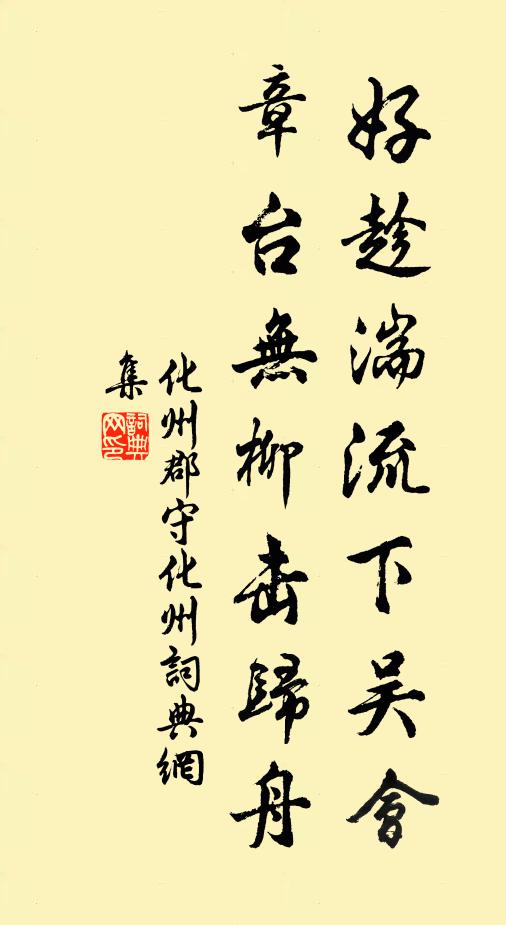 好趁湍流下吴會
章台無柳击歸舟
化州郡守化州詞典網
集
詞典
网印